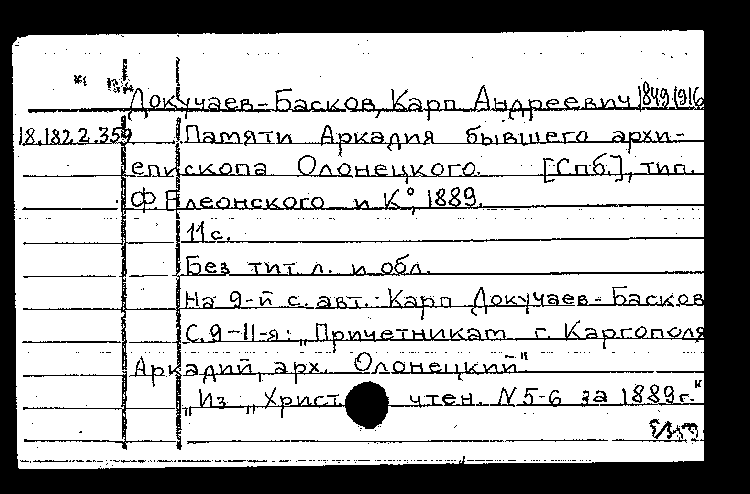 Докучаев-Басков, Карп Андреевич 1849 1916
18.182.2.359 Памяти Аркадия бывшего архи-
епископа Олонецкого. [Спб.], тип.
Ф. Елеонского и К°, 1889.
11 с.
Без тит. л. и обл.
На 9-й с. авт.: Карп Докучаев-Басков
С. 9-11-я: „Причетникам г. Каргополя
Аркадий, арх. Олонецкий".
„Из „Христ. чтен. N 5-6 за 1889 г."